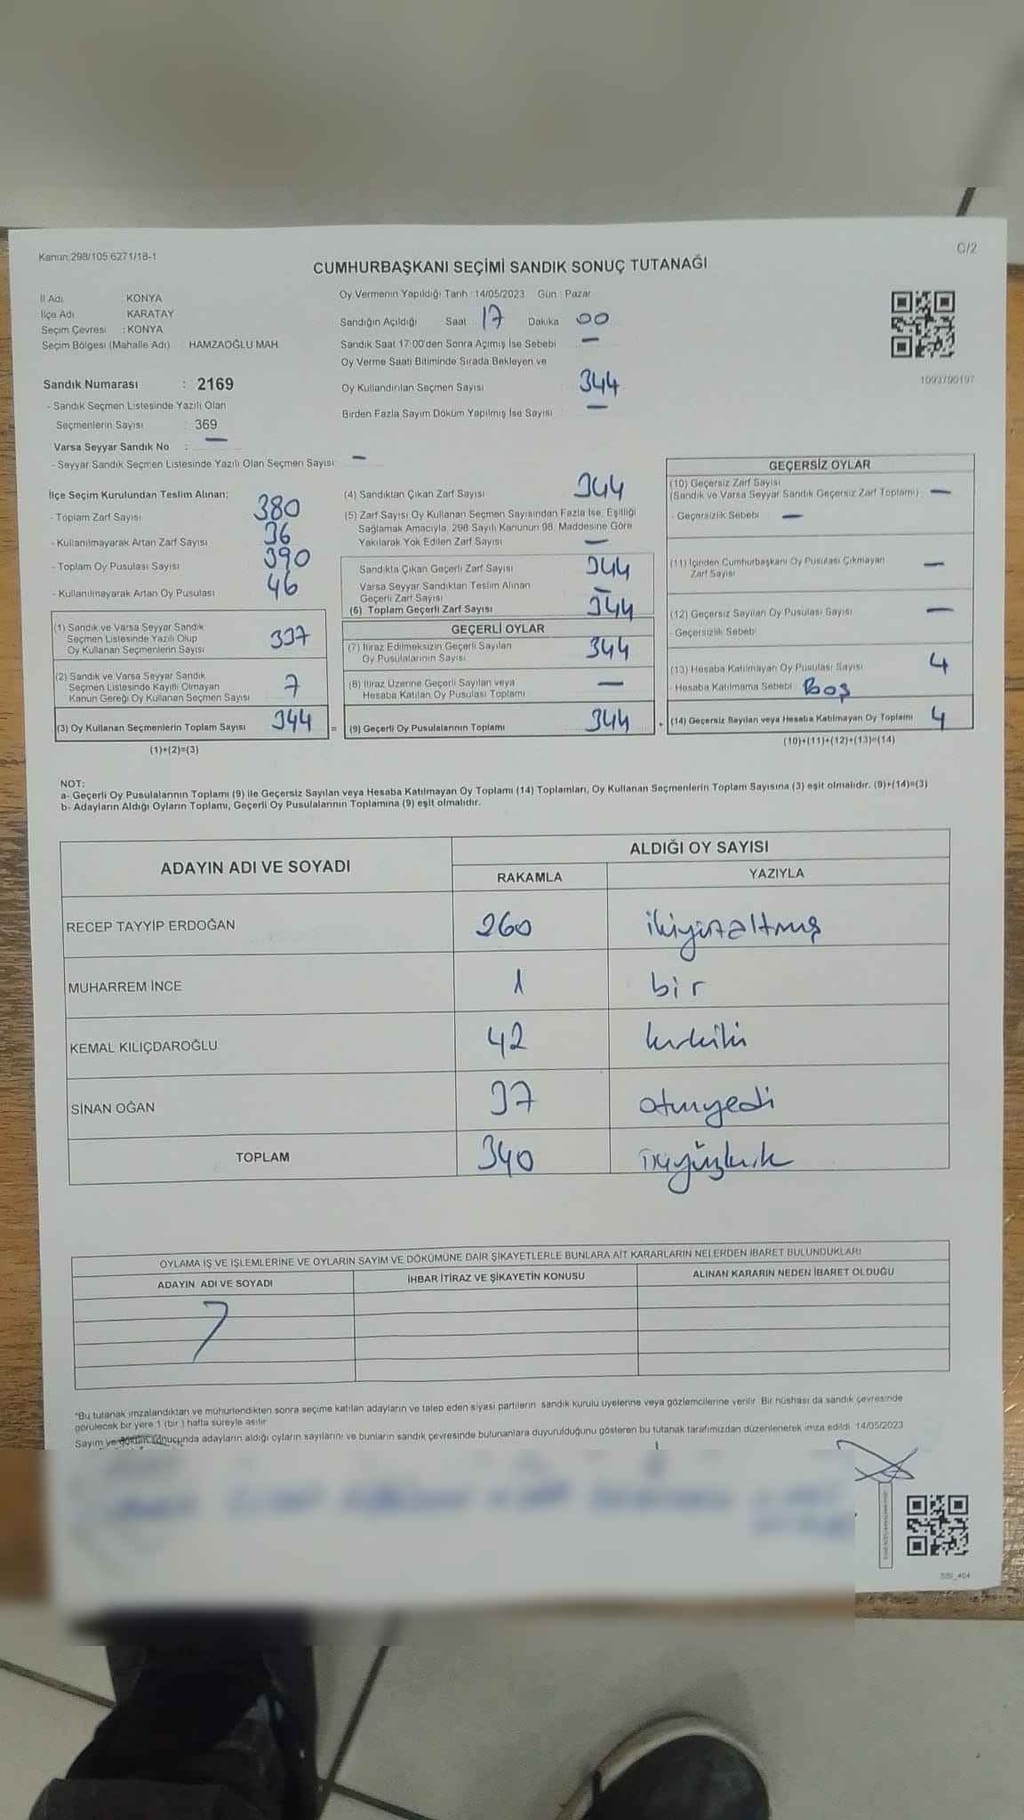 Kanun 298/105 6271/18-1
C/2
CUMHURBAŞKANI SEÇİMİ SANDIK SONUÇ TUTANAĞI
İl Adı KONYA
İlçe Adı KARATAY
Seçim Çevresi : KONYA
Seçim Bölgesi (Mahalle Adı) HAMZAOĞLU MAH.
Sandık Numarası : 2169
- Sandık Seçmen Listesinde Yazılı Olan
Seçmenlerin Sayısı : 369
Varsa Seyyar Sandık No : —
- Seyyar Sandık Seçmen Listesinde Yazılı Olan Seçmen Sayısı —
Oy Vermenin Yapıldığı Tarih : 14/05/2023 Gün : Pazar
Sandığın Açıldığı Saat 17 Dakika 00
Sandık Saat 17:00'den Sonra Açımış İse Sebebi —
Oy Verme Saati Bitiminde Sırada Bekleyen ve
Oy Kullandırılan Seçmen Sayısı 344
Birden Fazla Sayım Döküm Yapılmış İse Sayısı —
1093790197
İlçe Seçim Kurulundan Teslim Alınan:
- Toplam Zarf Sayısı 380
- Kullanılmayarak Artan Zarf Sayısı 36
- Toplam Oy Pusulası Sayısı 390
- Kullanılmayarak Artan Oy Pusulası 46
(1) Sandık ve Varsa Seyyar Sandık
Seçmen Listesinde Yazılı Olup
Oy Kullanan Seçmenlerin Sayısı 337
(2) Sandık ve Varsa Seyyar Sandık
Seçmen Listesinde Kayıtlı Olmayan
Kanun Gereği Oy Kullanan Seçmen Sayısı 7
(3) Oy Kullanan Seçmenlerin Toplam Sayısı 344
(1)+(2)=(3)
(4) Sandıktan Çıkan Zarf Sayısı 344
(5) Zarf Sayısı Oy Kullanan Seçmen Sayısından Fazla İse, Eşitliği
Sağlamak Amacıyla, 298 Sayılı Kanunun 98. Maddesine Göre
Yakılarak Yok Edilen Zarf Sayısı —
Sandıkla Çıkan Geçerli Zarf Sayısı 344
Varsa Seyyar Sandıktan Teslim Alınan
Geçerli Zarf Sayısı —
(6) Toplam Geçerli Zarf Sayısı 344
GEÇERLİ OYLAR
(7) İtiraz Edilmeksizin Geçerli Sayılan
Oy Pusulalarının Sayısı 344
(8) İtiraz Üzerine Geçerli Sayılan veya
Hesaba Katılan Oy Pusulası Toplamı —
= (9) Geçerli Oy Pusulalarının Toplamı 344
GEÇERSİZ OYLAR
(10) Geçersiz Zarf Sayısı
(Sandık ve Varsa Seyyar Sandık Geçersiz Zarf Toplamı) —
- Geçersizlik Sebebi —
(11) İçinden Cumhurbaşkanı Oy Pusulası Çıkmayan
Zarf Sayısı —
(12) Geçersiz Sayılan Oy Pusulası Sayısı —
- Geçersizlik Sebebi
(13) Hesaba Katılmayan Oy Pusulası Sayısı 4
- Hesaba Katılmama Sebebi Boş
+ (14) Geçersiz Sayılan veya Hesaba Katılmayan Oy Toplamı 4
(10)+(11)+(12)+(13)=(14)
NOT:
a- Geçerli Oy Pusulalarının Toplamı (9) ile Geçersiz Sayılan veya Hesaba Katılmayan Oy Toplamı (14) Toplamları, Oy Kullanan Seçmenlerin Toplam Sayısına (3) eşit olmalıdır. (9)+(14)=(3)
b- Adayların Aldığı Oyların Toplamı, Geçerli Oy Pusulalarının Toplamına (9) eşit olmalıdır.
ADAYIN ADI VE SOYADI ALDIĞI OY SAYISI
RAKAMLA YAZIYLA
RECEP TAYYİP ERDOĞAN 260 ikiyüzaltmış
MUHARREM İNCE 1 bir
KEMAL KILIÇDAROĞLU 42 kırkiki
SİNAN OĞAN 37 otuzyedi
TOPLAM 340
OYLAMA İŞ VE İŞLEMLERİNE VE OYLARIN SAYIM VE DÖKÜMÜNE DAİR ŞİKAYETLERLE BUNLARA AİT KARARLARIN NELERDEN İBARET BULUNDUKLARI
ADAYIN ADI VE SOYADI İHBAR İTİRAZ VE ŞİKAYETİN KONUSU ALINAN KARARIN NEDEN İBARET OLDUĞU
*Bu tutanak imzalandıktan ve mühürlendikten sonra seçime katılan adayların ve talep eden siyasi partilerin sandık kurulu üyelerine veya gözlemcilerine verilir. Bir nüshası da sandık çevresinde
görülecek bir yere 1 (bir) hafta süreyle asılır
Sayım ve döküm sonucunda adayların aldığı oyların sayılarını ve bunların sandık çevresinde bulunanlara duyurulduğunu gösteren bu tutanak tarafımızdan düzenlenerek imza edildi. 14/05/2023